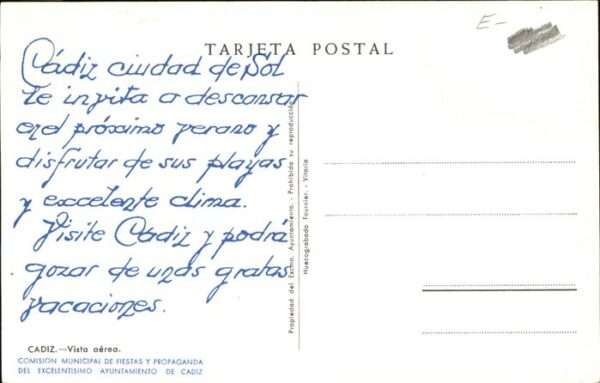 E-
TARJETA POSTAL
Cádiz ciudad de Sól
te invita a descansar
en el próximo verano y
disfrutar de sus playas
y excelente clima.
Visite Cádiz y podrá
gozar de unas gratas
vacaciones.
Propiedad del Excmo. Ayuntamiento. - Prohibida su reproducción
Huecograbado Fournier. - Vitoria
CADIZ.—Vista aérea.
COMISION MUNICIPAL DE FIESTAS Y PROPAGANDA
DEL EXCELENTISIMO AYUNTAMIENTO DE CADIZ